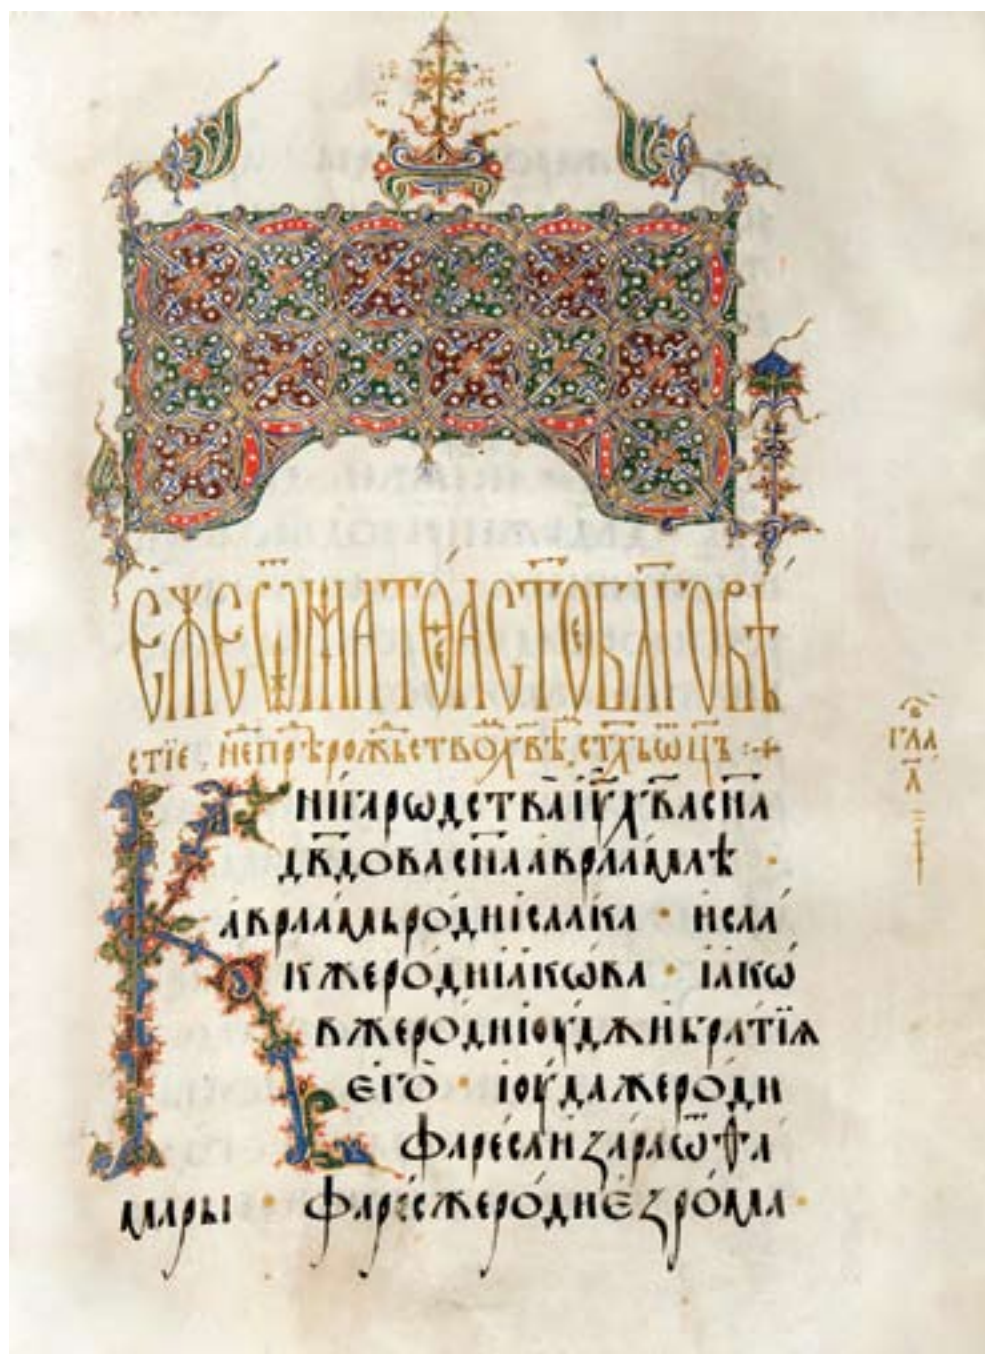 ЕЖЕ Ѿ МАТѲЕА СТ͠ОЕ БЛ͠ГОВѢ
стїе, не прѣ рож҃ьством х҃вѣ, ст҃хь ѿц҃ъ :+
Кни́га рѡдства̀ і҆у҃ х҃ва сн҃а
дв҃дова сн҃а а҆враа́млѣ ·
а҆враа́мь ро́ди і҆саа́ка · и҆саа́
к же ро́ди і҆а́кѡва · і҆а́кѡ́
в же ро́ди і҆оу́дѫ и҆ бра́тїѧ
є҆го̀ · і҆оу́да же ро́ди
фаре́са и҆ за́ра ѿ ѳа
мары · фаре́с же ро́ди є҆зро́ма ·
гла́
а҃